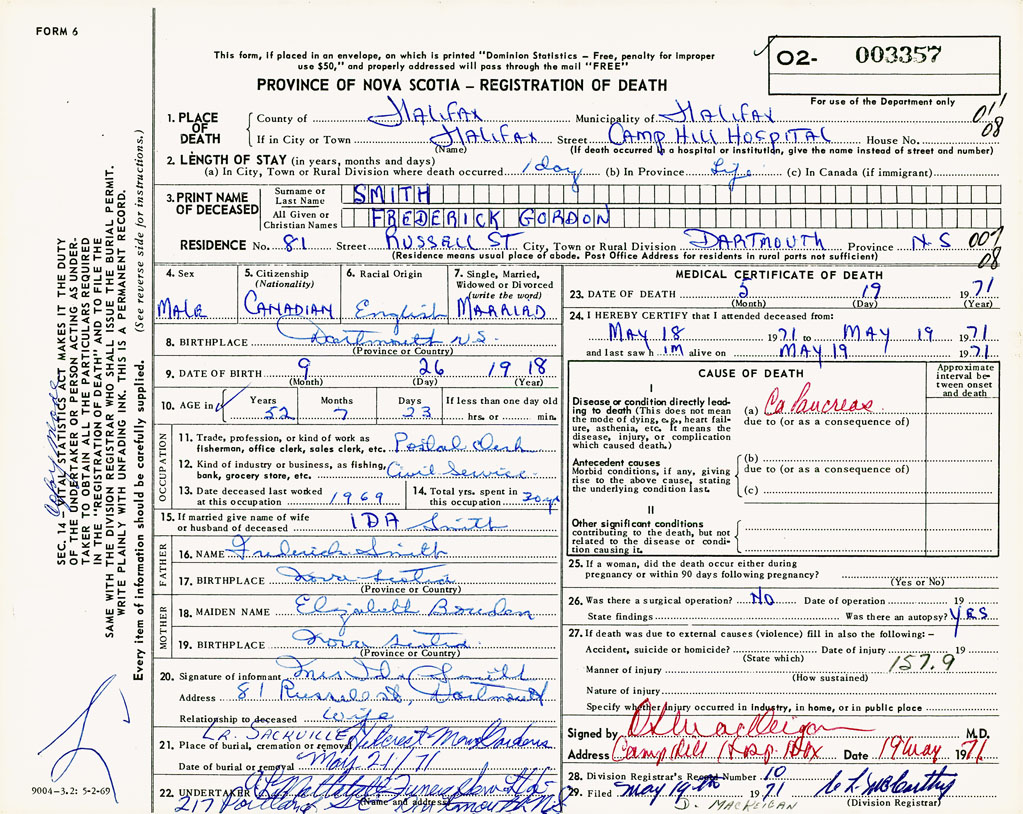 FORM 6
This form, if placed in an envelope, on which is printed "Dominion Statistics – Free, penalty for improper
use $50," and properly addressed will pass through the mail "FREE"
O2- 003357
PROVINCE OF NOVA SCOTIA – REGISTRATION OF DEATH
For use of the Department only
1. PLACE OF DEATH
County of HALIFAX Municipality of HALIFAX 01'
08
If in City or Town HALIFAX Street CAMP HILL HOSPITAL House No.
(Name) (If death occurred in a hospital or institution, give the name instead of street and number)
2. LENGTH OF STAY (in years, months and days)
(a) In City, Town or Rural Division where death occurred 1 day (b) In Province Life (c) In Canada (if immigrant)
3. PRINT NAME OF DECEASED
Surname or Last Name SMITH
All Given or Christian Names FREDERICK GORDON
RESIDENCE No. 81 Street RUSSELL ST City, Town or Rural Division DARTMOUTH Province N S 007
08
(Residence means usual place of abode. Post Office Address for residents in rural parts not sufficient)
4. Sex
MALE
5. Citizenship
(Nationality)
CANADIAN
6. Racial Origin
English
7. Single, Married,
Widowed or Divorced
(write the word)
MARRIED
8. BIRTHPLACE Dartmouth N.S.
(Province or Country)
9. DATE OF BIRTH 9 26 1918
(Month) (Day) (Year)
10. AGE in Years Months Days If less than one day old
52 7 23 hrs. or min.
OCCUPATION
11. Trade, profession, or kind of work as
fisherman, office clerk, sales clerk, etc. Postal Clerk
12. Kind of industry or business, as fishing,
bank, grocery store, etc. Civil Service
13. Date deceased last worked
at this occupation 1969
14. Total yrs. spent in
this occupation 30 yr
15. If married give name of wife
or husband of deceased IDA Smith
FATHER
16. NAME Frederick Smith
17. BIRTHPLACE Nova Scotia
(Province or Country)
MOTHER
18. MAIDEN NAME Elizabeth Bowden
19. BIRTHPLACE Nova Scotia
(Province or Country)
20. Signature of informant Mrs Ida Smith
Address 81 Russell St, Dartmouth
Relationship to deceased wife
LR. SACKVILLE
21. Place of burial, cremation or removal Gardens
Date of burial or removal May 21/71
22. UNDERTAKER Funeral Home Ltd
(Name and address)
217 Portland St Dartmouth N.S
MEDICAL CERTIFICATE OF DEATH
23. DATE OF DEATH 5 19 1971
(Month) (Day) (Year)
24. I HEREBY CERTIFY that I attended deceased from:
MAY 18 1971 to MAY 19 1971
and last saw h IM alive on MAY 19 1971
CAUSE OF DEATH
Approximate
interval be-
tween onset
and death
I
Disease or condition directly lead-
ing to death (This does not mean
the mode of dying, e.g., heart fail-
ure, asthenia, etc. It means the
disease, injury, or complication
which caused death.)
(a) Ca Pancreas
due to (or as a consequence of)
Antecedent causes
Morbid conditions, if any, giving
rise to the above cause, stating
the underlying condition last.
(b)
due to (or as a consequence of)
(c)
II
Other significant conditions
contributing to the death, but not
related to the disease or condi-
tion causing it.
25. If a woman, did the death occur either during
pregnancy or within 90 days following pregnancy?
(Yes or No)
26. Was there a surgical operation? NO Date of operation 19
State findings Was there an autopsy? YES
27. If death was due to external causes (violence) fill in also the following: –
Accident, suicide or homicide? Date of injury 19
(State which)
Manner of injury 157.9
(How sustained)
Nature of injury
Specify whether injury occurred in industry, in home, or in public place
Signed by MacKeigan M.D.
Address Camp Hill Hosp. Hfx Date 19 May 1971
28. Division Registrar's Record Number 10
29. Filed May 19th 1971 McCarthy
(Division Registrar)
D. MACKEIGAN
SEC. 14 – VITAL STATISTICS ACT MAKES IT THE DUTY
OF THE UNDERTAKER OR PERSON ACTING AS UNDER-
TAKER TO OBTAIN ALL THE PARTICULARS REQUIRED
IN THE "REGISTRATION OF DEATH" AND TO FILE THE
SAME WITH THE DIVISION REGISTRAR WHO SHALL ISSUE THE BURIAL PERMIT.
WRITE PLAINLY WITH UNFADING INK. THIS IS A PERMANENT RECORD.
Every item of information should be carefully supplied. (See reverse side for instructions.)
9004–3.2: 5-2-69